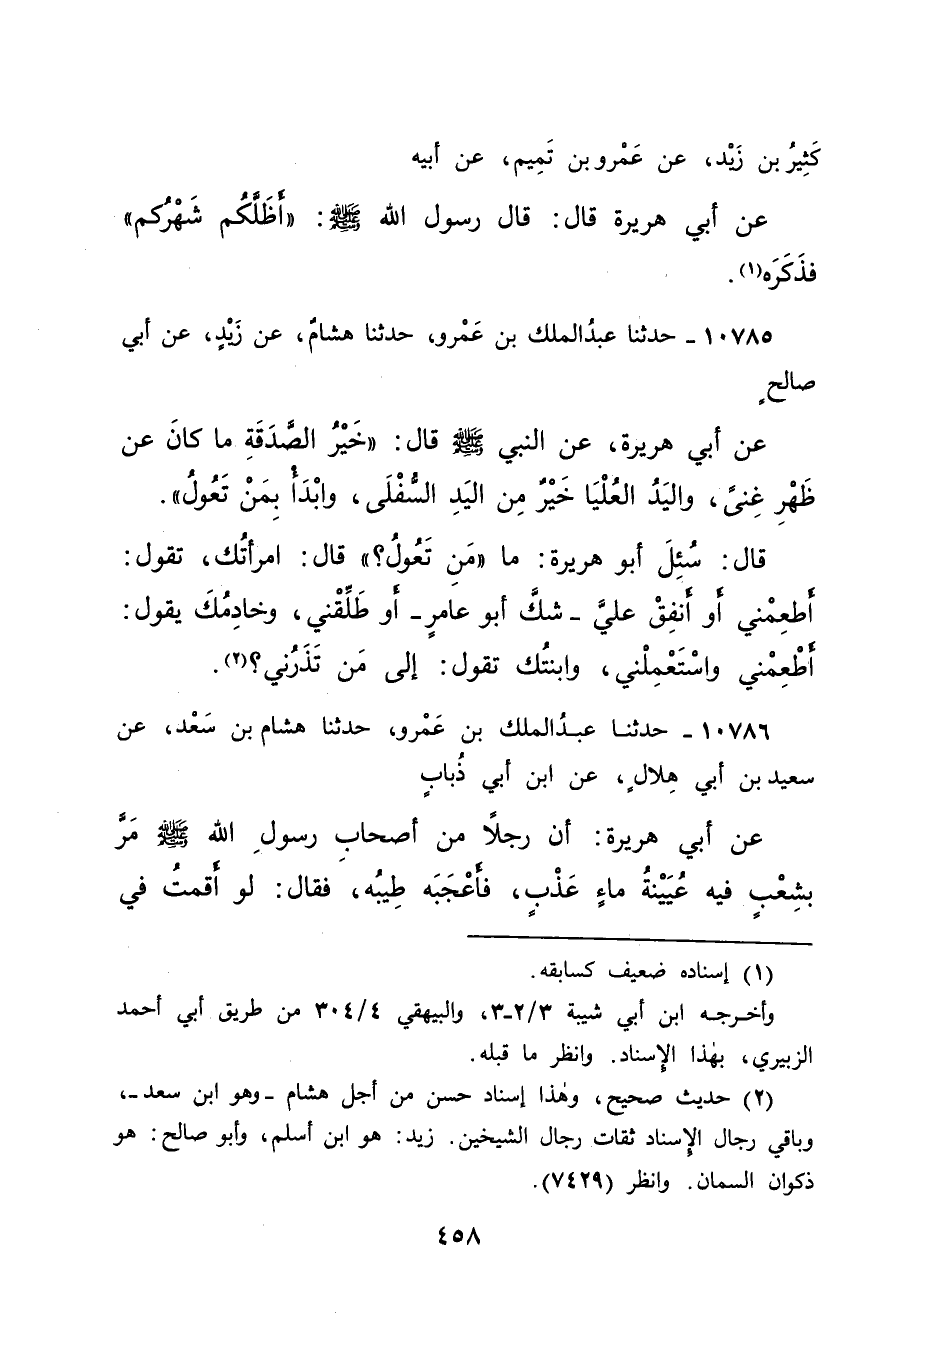 كَثِيرُ بن زَيْد، عن عَمْرو بن تَمِيم، عن أبيه
عن أبي هريرة قال: قال رسول الله ﷺ: «أَظَلَّكُم شَهْرُكم»
فذَكَرَه(١).
١٠٧٨٥ ـ حدثنا عبدُالملك بن عَمْرو، حدثنا هشامٌ، عن زَيْدٍ، عن أبي
صالحٍ
عن أبي هريرة، عن النبي ﷺ قال: «خَيْرُ الصَّدَقَةِ ما كانَ عن
ظَهْرِ غِنىً، واليَدُ العُلْيَا خَيْرٌ مِن اليَدِ السُّفْلَى، وابْدَأْ بِمَنْ تَعُولُ».
قال: سُئِلَ أبو هريرة: ما «مَن تَعُولُ؟» قال: امرأتُك، تقول:
أَطعِمْني أَو أَنفِقْ عليَّ ـ شكَّ أبو عامرٍ ـ أَو طَلِّقْني، وخادِمُكَ يقول:
أَطْعِمْني واسْتَعْمِلْني، وابنتُك تقول: إلى مَن تَذَرُني؟(٢).
١٠٧٨٦ ـ حدثنا عبدُالملك بن عَمْرو، حدثنا هشام بن سَعْد، عن
سعيد بن أبي هِلالٍ، عن ابن أبي ذُبابٍ
عن أبي هريرة: أن رجلاً من أصحابِ رسولِ الله ﷺ مَرَّ
بشِعْبٍ فيه عُيَيْنةُ ماءٍ عَذْبٍ، فأَعْجَبَه طِيبُه، فقال: لو أَقمتُ في
(١) إسناده ضعيف كسابقه.
وأخرجه ابن أبي شيبة ٣/٢-٣، والبيهقي ٣٠٤/٤ من طريق أبي أحمد
الزبيري، بهٰذا الإسناد. وانظر ما قبله.
(٢) حديث صحيح، وهٰذا إسناد حسن من أجل هشام ـ وهو ابن سعد ـ،
وباقي رجال الإسناد ثقات رجال الشيخين. زيد: هو ابن أسلم، وأبو صالح: هو
ذكوان السمان. وانظر (٧٤٢٩).
٤٥٨